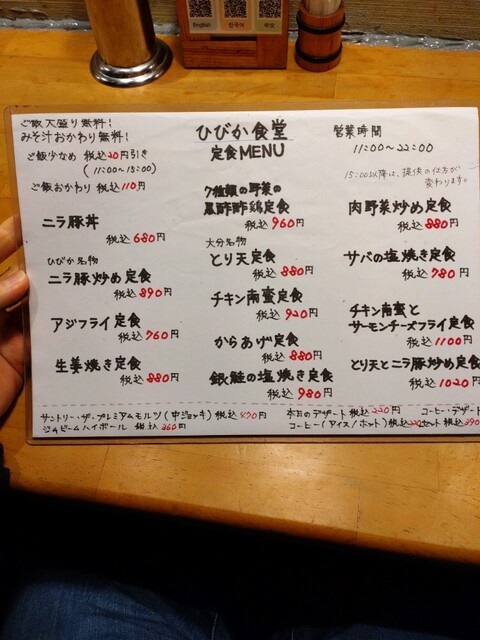 English
한국어
中文
ご飯大盛り無料!
みそ汁おかわり無料!
ご飯少なめ 税込20円引き
(11:00〜15:00)
ご飯おかわり 税込110円
ひびか食堂
定食MENU
営業時間
11:00〜22:00
15:00以降は、提供の仕方が
変わります。
ニラ豚丼
税込680円
ひびか名物
ニラ豚炒め定食
税込890円
アジフライ定食
税込760円
生姜焼き定食
税込880円
7種類の野菜の
黒酢酢鶏定食
税込960円
大分名物
とり天定食
税込880円
チキン南蛮定食
税込920円
からあげ定食
税込880円
銀鮭の塩焼き定食
税込980円
肉野菜炒め定食
税込880円
サバの塩焼き定食
税込780円
チキン南蛮と
サーモンチーズフライ定食
税込1100円
とり天とニラ豚炒め定食
税込1020円
サントリー・ザ・プレミアムモルツ(中ジョッキ) 税込
ジムビームハイボール 税込360円
本日のデザート 税込220円
コーヒー(アイス/ホット) 税込
コーヒー・デザート
セット 税込390